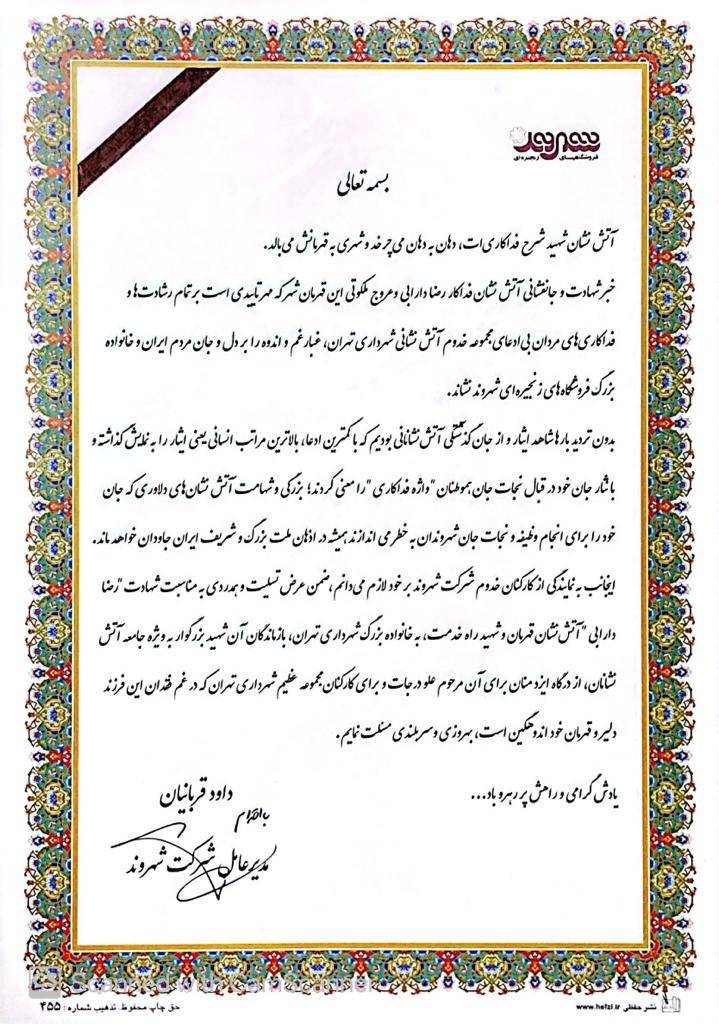 شهروند
فروشگاههای زنجیره‌ای
بسمه تعالی
آتش نشان شهید شرح فداکاری‌ات، دهان به دهان می‌چرخد و شهری به قهرمانش می‌بالد.
خبر شهادت و جانفشانی آتش نشان فداکار رضا دارابی و عروج ملکوتی این قهرمان شهر که مهر تاییدی است بر تمام رشادت‌ها و
فداکاری‌های مردان بی‌ادعای مجموعه خدوم آتش نشانی شهرداری تهران، غبار غم و اندوه را بر دل و جان مردم ایران و خانواده
بزرگ فروشگاه‌های زنجیره‌ای شهروند نشاند.
بدون تردید بارها شاهد ایثار و از جان گذشتگی آتش نشانانی بودیم که با کمترین ادعا، بالاترین مراتب انسانی یعنی ایثار را به نمایش گذاشته و
با نثار جان خود در قبال نجات جان هموطنان "واژه فداکاری" را معنی کردند؛ بزرگی و شهامت آتش نشان‌های دلاوری که جان
خود را برای انجام وظیفه و نجات جان شهروندان به خطر می اندازند همیشه در اذهان ملت بزرگ و شریف ایران جاودان خواهد ماند.
اینجانب به نمایندگی از کارکنان خدوم شرکت شهروند بر خود لازم می‌دانم، ضمن عرض تسلیت و همدردی به مناسبت شهادت "رضا
دارابی" آتش نشان قهرمان و شهید راه خدمت، به خانواده بزرگ شهرداری تهران، بازماندگان آن شهید بزرگوار به ویژه جامعه آتش
نشانان، از درگاه ایزد منان برای آن مرحوم علو درجات و برای کارکنان مجموعه عظیم شهرداری تهران که در غم فقدان این فرزند
دلیر و قهرمان خود اندوهگین است، بهروزی و سربلندی مسئلت نمایم.
یادش گرامی و راهش پر رهرو باد...
داود قربانیان
با احترام
مدیرعامل شرکت شهروند
Scanned with CamScanner
نشر حفظی www.hefzi.ir
حق چاپ محفوظ. تذهیب شماره: ۴۵۵